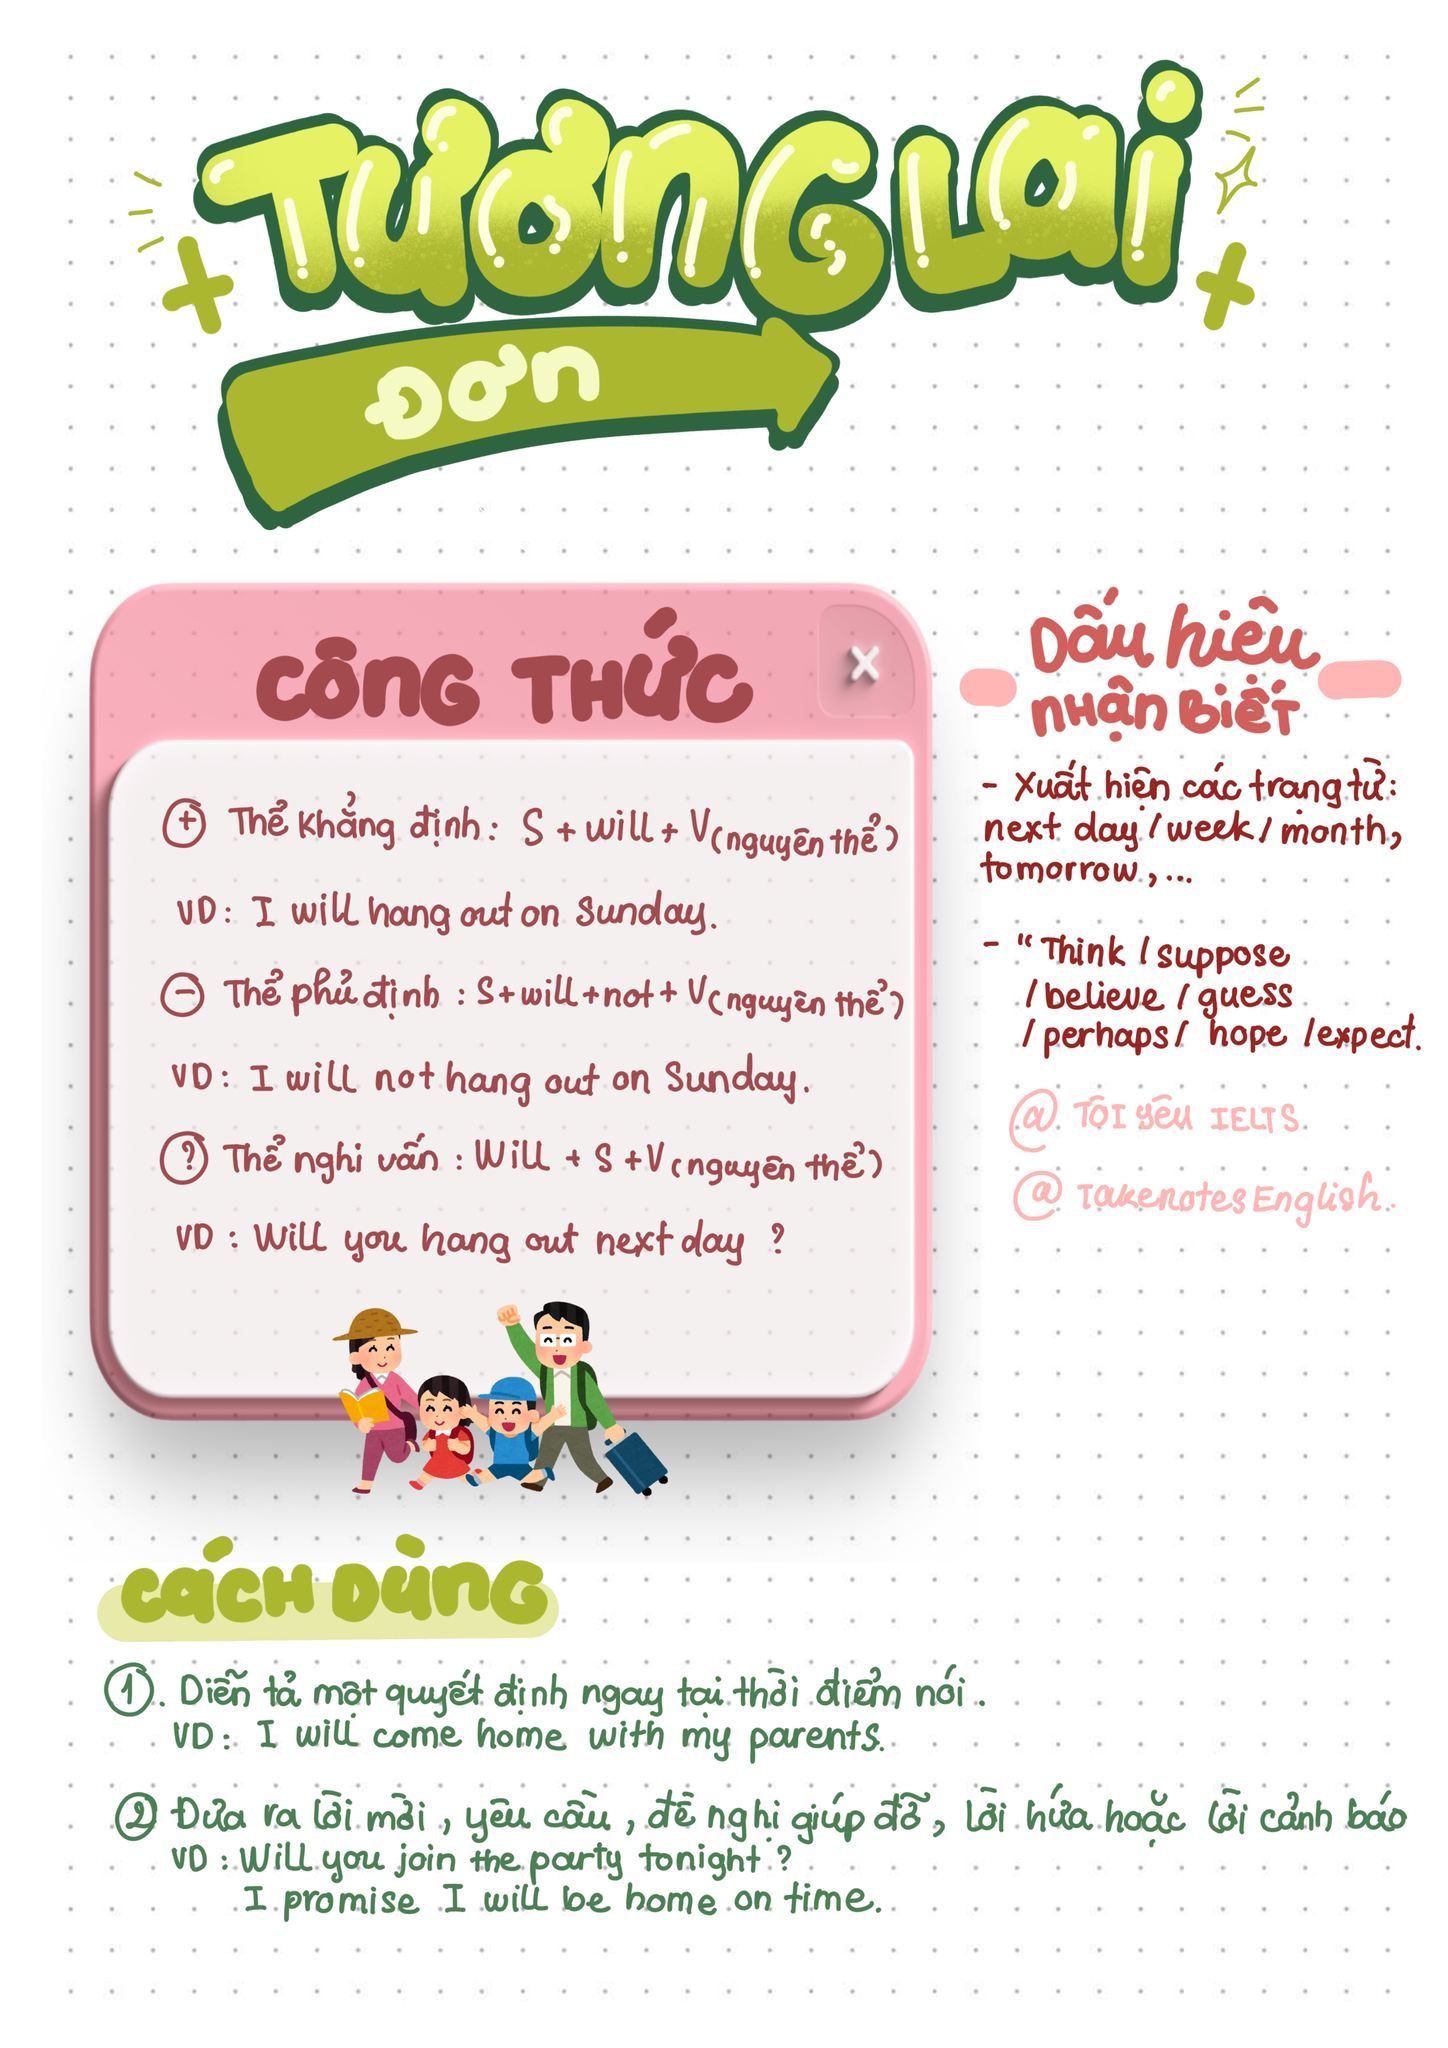 TƯƠNG LAI
ĐƠN
CÔNG THỨC
x
+ Thể khẳng định: S + will + V(nguyên thể)
VD: I will hang out on Sunday.
- Thể phủ định: S+will+not+ V(nguyên thể)
VD: I will not hang out on Sunday.
? Thể nghi vấn: Will + S +V(nguyên thể)
VD: Will you hang out next day ?
Dấu hiệu
nhận biết
- Xuất hiện các trạng từ:
next day / week / month,
tomorrow, ...
- “Think / suppose
/ believe / guess
/ perhaps / hope / expect.
@ TÔI yêu IELTS
@ TakenotesEnglish.
CÁCH DÙNG
1. Diễn tả một quyết định ngay tại thời điểm nói.
VD: I will come home with my parents.
2 Đưa ra lời mời, yêu cầu, đề nghị giúp đỡ, lời hứa hoặc lời cảnh báo
VD: Will you join the party tonight ?
I promise I will be home on time.